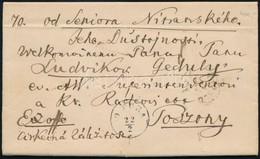 70. od Seniora Nitranského.
Jeho Důstojnosti,
Welkomocnému Panu, Panu
Ludvikovi Geduly
ev. A.V. Superintendentovi
a Kr. Radcovi etc a
Ex offo
Posony
cirkevná Záležitosť
22
2